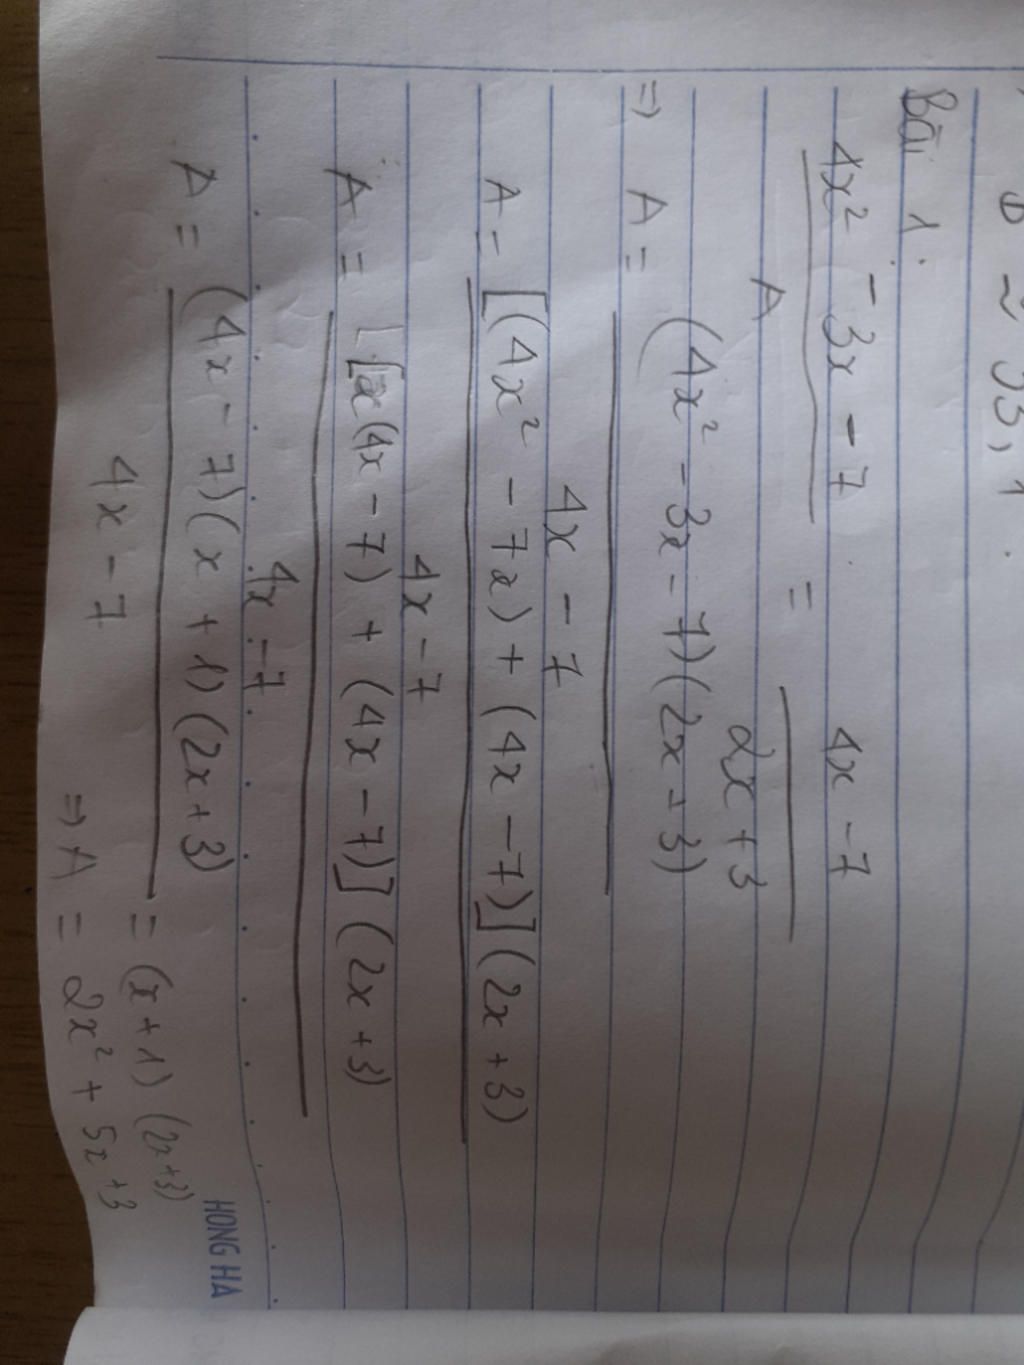 ≈ 33,1.
Bài 1.
4x² - 3x - 7 = 4x - 7
A 2x + 3
⇒ A = (4x² - 3x - 7)(2x + 3)
4x - 7
A = [(4x² - 7x) + (4x - 7)](2x + 3)
4x - 7
A = [x(4x - 7) + (4x - 7)](2x + 3)
4x - 7
A = (4x - 7)(x + 1)(2x + 3) = (x + 1)(2x + 3)
4x - 7
⇒ A = 2x² + 5x + 3
HONG HA